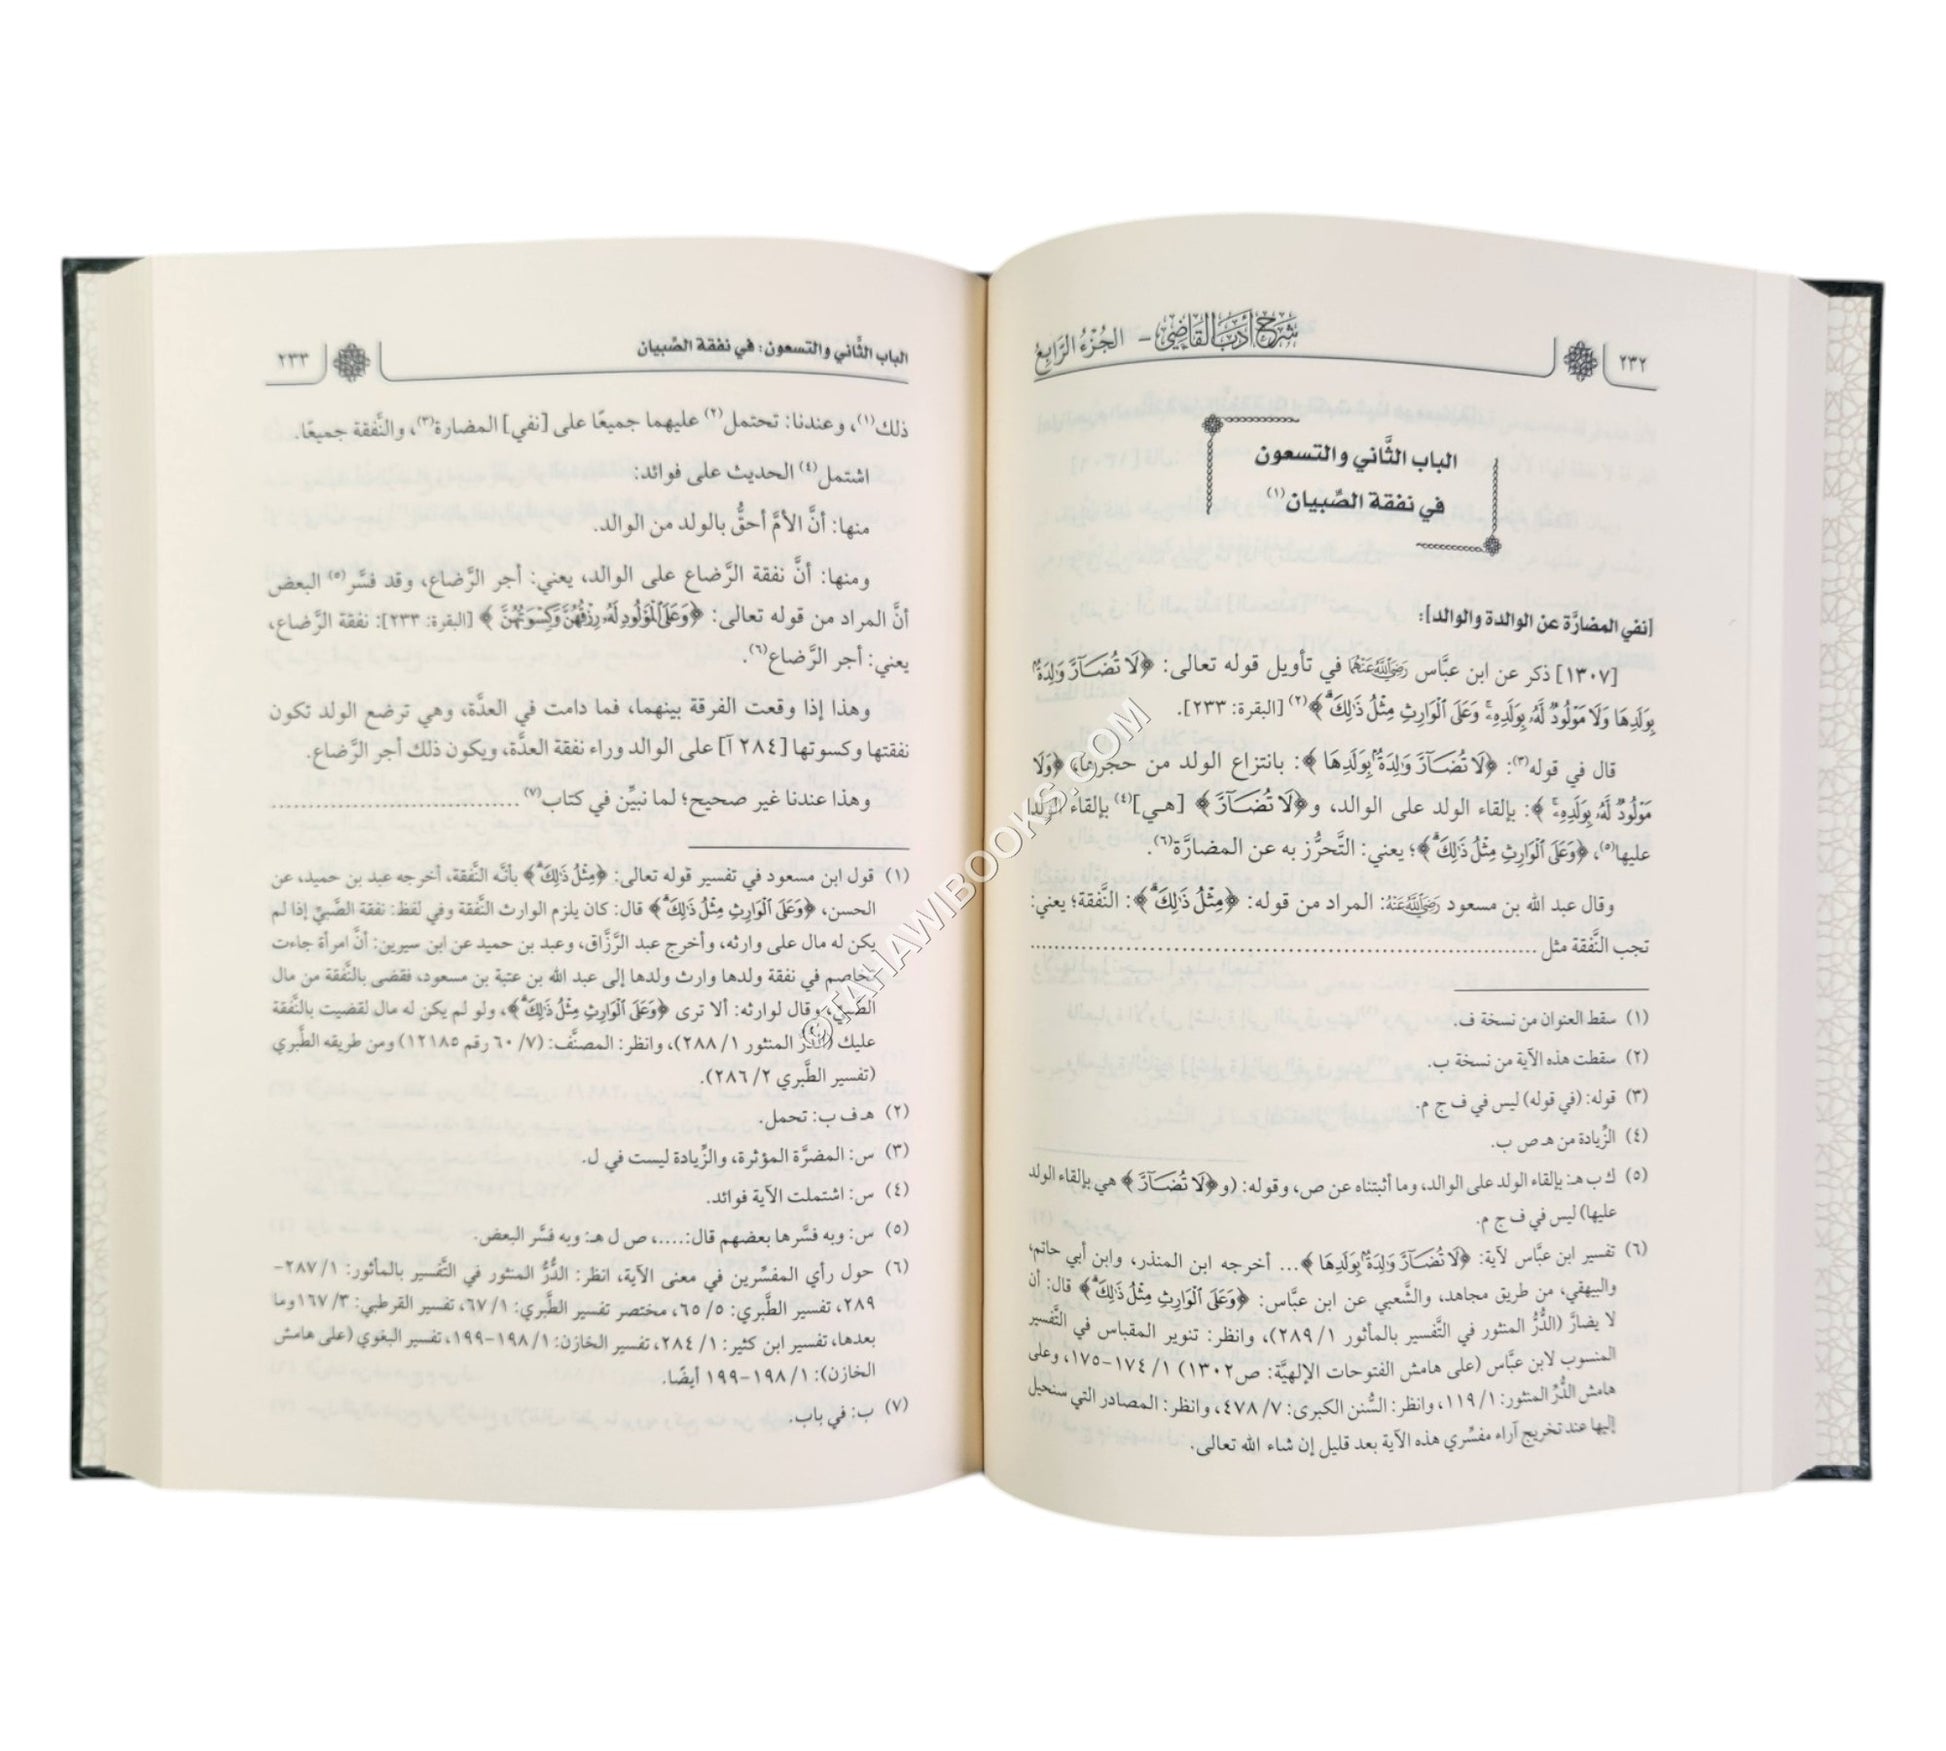 ٢٣٢
شرح أدب القاضي - الجزء الرابع
الباب الثَّاني والتسعون
في نفقة الصِّبيان(١)
[نفي المضارَّة عن الوالدة والوالد]:
[١٣٠٧] ذكر عن ابن عبَّاس رَضِيَ اللَّهُ عَنْهُمَا في تأويل قوله تعالى: ﴿لَا تُضَآرَّ وَٰلِدَةُۢ
بِوَلَدِهَا وَلَا مَوْلُودٌ لَّهُۥ بِوَلَدِهِۦۚ وَعَلَى ٱلْوَارِثِ مِثْلُ ذَٰلِكَۗ﴾(٢) [البقرة: ٢٣٣].
قال في قوله(٣): ﴿لَا تُضَآرَّ وَٰلِدَةُۢ بِوَلَدِهَا﴾: بانتزاع الولد من حجرها، ﴿وَلَا
مَوْلُودٌ لَّهُۥ بِوَلَدِهِۦۚ﴾: بإلقاء الولد على الوالد، و﴿لَا تُضَآرَّ﴾ [هي](٤) بإلقاء الولد
عليها(٥)، ﴿وَعَلَى ٱلْوَارِثِ مِثْلُ ذَٰلِكَۗ﴾؛ يعني: التَّحرُّز به عن المضارَّة(٦).
وقال عبد الله بن مسعود رَضِيَ اللَّهُ عَنْهُ: المراد من قوله: ﴿مِثْلُ ذَٰلِكَۗ﴾: النَّفقة؛ يعني:
تجب النَّفقة مثل ....................
(١) سقط العنوان من نسخة ف.
(٢) سقطت هذه الآية من نسخة ب.
(٣) قوله: (في قوله) ليس في ف ج م.
(٤) الزِّيادة من هـ ص ب.
(٥) ك ب هـ: بإلقاء الولد على الوالد، وما أثبتناه عن ص، وقوله: (و﴿لَا تُضَآرَّ﴾ هي بإلقاء الولد
عليها) ليس في ف ج م.
(٦) تفسير ابن عبَّاس لآية: ﴿لَا تُضَآرَّ وَٰلِدَةُۢ بِوَلَدِهَا﴾... أخرجه ابن المنذر، وابن أبي حاتم،
والبيهقي، من طريق مجاهد، والشَّعبي عن ابن عبَّاس: ﴿وَعَلَى ٱلْوَارِثِ مِثْلُ ذَٰلِكَۗ﴾ قال: أن
لا يضارَّ (الدُّرُّ المنثور في التَّفسير بالمأثور ١/ ٢٨٩)، وانظر: تنوير المقباس في التَّفسير
المنسوب لابن عبَّاس (على هامش الفتوحات الإلهيَّة: ص١٣٠٢) ١/ ١٧٤-١٧٥، وعلى
هامش الدُّرِّ المنثور: ١/ ١١٩، وانظر: السُّنن الكبرى: ٧/ ٤٧٨، وانظر: المصادر التي سنحيل
إليها عند تخريج آراء مفسِّري هذه الآية بعد قليل إن شاء الله تعالى.
الباب الثَّاني والتسعون: في نفقة الصِّبيان
٢٣٣
ذلك(١)، وعندنا: تحتمل(٢) عليهما جميعًا على [نفي] المضارة(٣)، والنَّفقة جميعًا.
اشتمل(٤) الحديث على فوائد:
منها: أنَّ الأمَّ أحقُّ بالولد من الوالد.
ومنها: أنَّ نفقة الرَّضاع على الوالد، يعني: أجر الرَّضاع، وقد فسَّر(٥) البعض
أنَّ المراد من قوله تعالى: ﴿وَعَلَى ٱلْمَوْلُودِ لَهُۥ رِزْقُهُنَّ وَكِسْوَتُهُنَّ﴾ [البقرة: ٢٣٣]: نفقة الرَّضاع،
يعني: أجر الرَّضاع(٦).
وهذا إذا وقعت الفرقة بينهما، فما دامت في العدَّة، وهي ترضع الولد تكون
نفقتها وكسوتها [٢٨٤ آ] على الوالد وراء نفقة العدَّة، ويكون ذلك أجر الرَّضاع.
وهذا عندنا غير صحيح؛ لما نبيِّن في كتاب(٧) ....................
(١) قول ابن مسعود في تفسير قوله تعالى: ﴿مِثْلُ ذَٰلِكَۗ﴾ بأنَّه النَّفقة، أخرجه عبد بن حميد، عن
الحسن، ﴿وَعَلَى ٱلْوَارِثِ مِثْلُ ذَٰلِكَۗ﴾ قال: كان يلزم الوارث النَّفقة وفي لفظ: نفقة الصَّبيِّ إذا لم
يكن له مال على وارثه، وأخرج عبد الرَّزَّاق، وعبد بن حميد عن ابن سيرين: أنَّ امرأة جاءت
تخاصم في نفقة ولدها وارث ولدها إلى عبد الله بن عتبة بن مسعود، فقضى بالنَّفقة من مال
الصَّبيِّ، وقال لوارثه: ألا ترى ﴿وَعَلَى ٱلْوَارِثِ مِثْلُ ذَٰلِكَۗ﴾، ولو لم يكن له مال لقضيت بالنَّفقة
عليك (الدُّرُّ المنثور ١/ ٢٨٨)، وانظر: المصنَّف: (٧/ ٦٠ رقم ١٢١٨٥) ومن طريقه الطَّبري
(تفسير الطَّبري ٢/ ٢٨٦).
(٢) هـ ف ب: تحمل.
(٣) س: المضرَّة المؤثرة، والزِّيادة ليست في ل.
(٤) س: اشتملت الآية فوائد.
(٥) س: وبه فسَّرها بعضهم قال:....، ص ل هـ: وبه فسَّر البعض.
(٦) حول رأي المفسِّرين في معنى الآية، انظر: الدُّرُّ المنثور في التَّفسير بالمأثور: ١/ ٢٨٧-
٢٨٩، تفسير الطَّبري: ٥/ ٦٥، مختصر تفسير الطَّبري: ١/ ٦٧، تفسير القرطبي: ٣/ ١٦٧ وما
بعدها، تفسير ابن كثير: ١/ ٢٨٤، تفسير الخازن: ١/ ١٩٨-١٩٩، تفسير البغوي (على هامش
الخازن): ١/ ١٩٨-١٩٩ أيضًا.
(٧) ب: في باب.
©TAHAWIBOOKS.COM